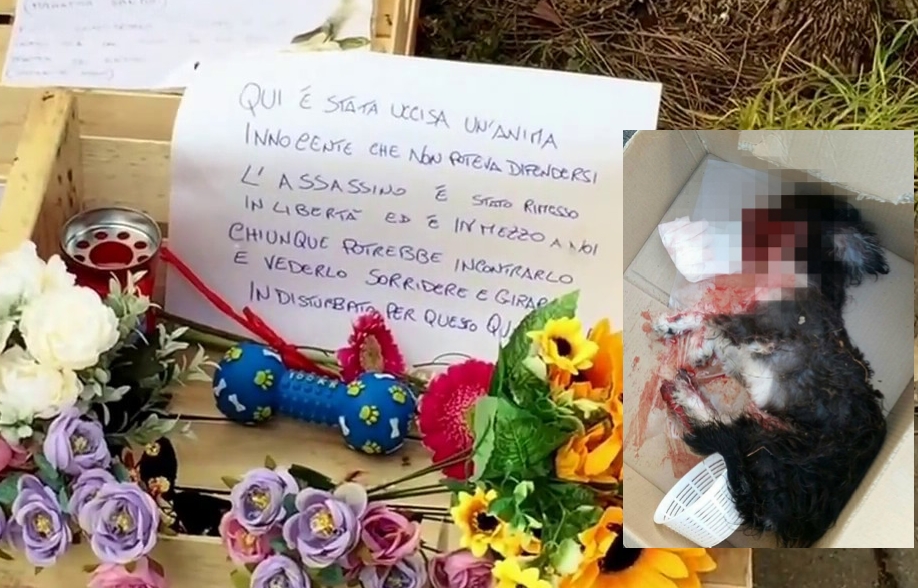 QUI È STATA UCCISA UN'ANIMA
INNOCENTE CHE NON POTEVA DIFENDERSI
L'ASSASSINO È STATO RIMESSO
IN LIBERTÀ ED È IN MEZZO A NOI
CHIUNQUE POTREBBE INCONTRARLO
E VEDERLO SORRIDERE E GIRARE
INDISTURBATO PER QUESTO